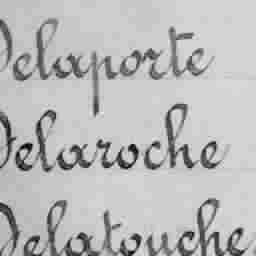 Delaporte
Delaroche
Delatouche